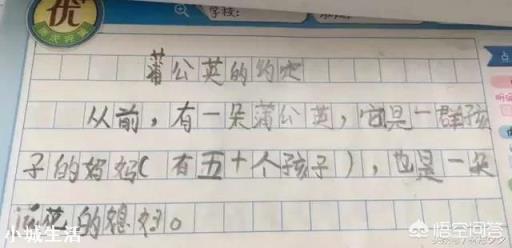 优
学校：
蒲公英的约定
从前，有一朵蒲公英，它是一群孩
子的妈妈（有五十个孩子），也是一朵
的媳妇。
小城生活
悟空问答